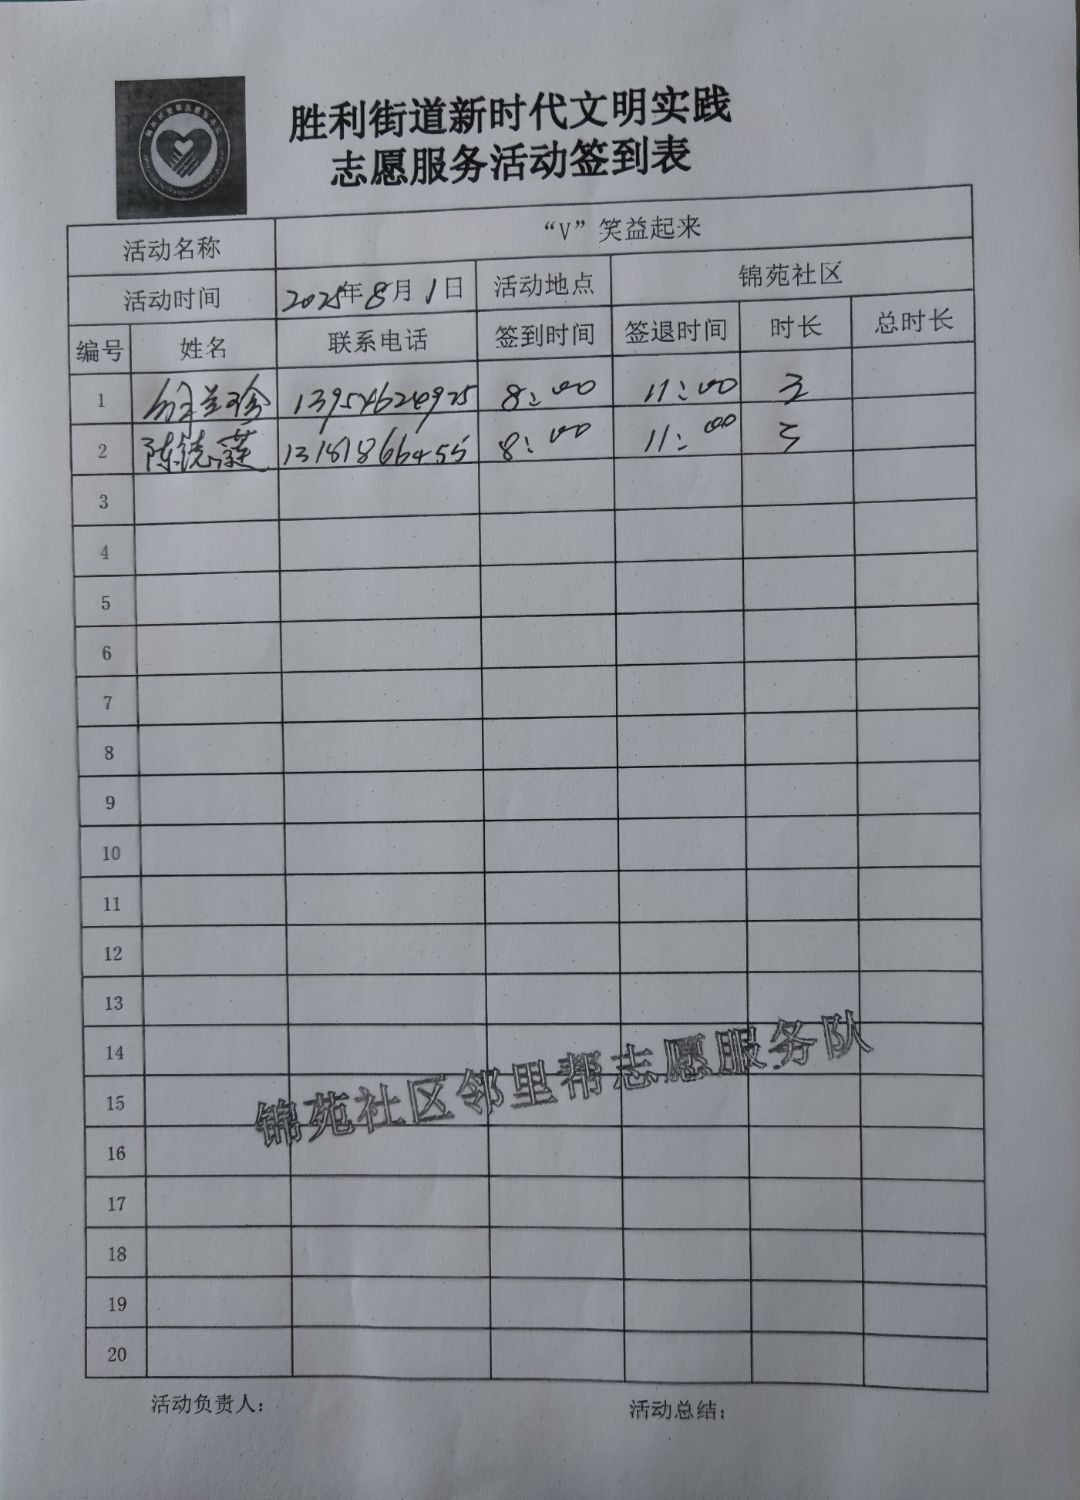 胜利街道新时代文明实践
志愿服务活动签到表
活动名称 “V”笑益起来
活动时间 2025年8月1日 活动地点 锦苑社区
编号 姓名 联系电话 签到时间 签退时间 时长 总时长
1 兰珍 8:00 11:00 3
2 陈德莲 13181866455 8:00 11:00 3
3
4
5
6
7
8
9
10
11
12
13
14
15
16
17
18
19
20
锦苑社区邻里帮志愿服务队
活动负责人: 活动总结: